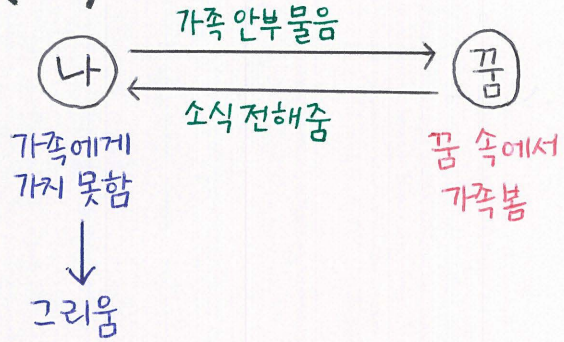 가족 안부 물음
나
꿈
소식 전해줌
가족에게
가지 못함
꿈 속에서
가족봄
그리움